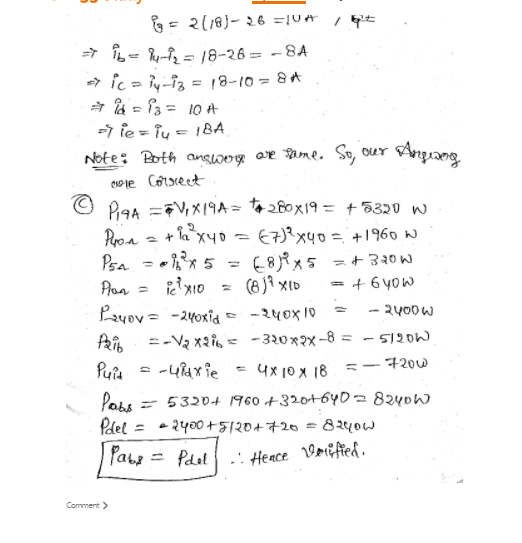 i3 = 2(18) - 26 = 10A
⇒ ib = i4 - i2 = 18-26 = -8A
⇒ ic = i4 - i3 = 18-10 = 8A
⇒ id = i3 = 10 A
⇒ ie = i4 = 18A
Note: Both answers are same. So, our Answers
are Correct
Ⓒ P19A = V1×19A = +280×19 = +5320 W
= +ia²×40 = (-7)²×40 = +1960 W
P5Ω = ib²×5 = (-8)²×5 = +320W
= ic²×10 = (8)²×10 = +640W
P240V = -240×id = -240×10 = -2400W
P2ib = -V2×2ib = -320×2×-8 = -5120W
P4id = -4id×ie = 4×10×18 = -720W
Pabs = 5320+1960+320+640 = 8240W
Pdel = 2400+5120+720 = 8240W
Pabs = Pdel ∴ Hence Verified.
Comment >